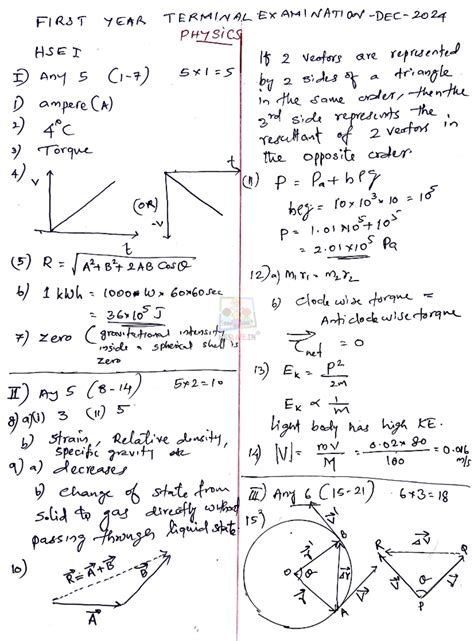 FIRST YEAR TERMINAL EXAMINATION-DEC-2024
PHYSICS
HSE I
I) Any 5 (1-7) 5x1=5
1) ampere (A)
2) 4°C
3) Torque
4) V
t
(OR)
t
-V
(5) R = √A²+B²+2AB Cosθ
6) 1 kWh = 1000 W x 60x60 sec
= 36x10⁵ J
7) zero (gravitational intensity
inside a spherical shell is
zero
II) Any 5 (8-14) 5x2=10
8) a) (i) 3 (ii) 5
b) Strain, Relative density,
specific gravity etc
9) a) decreases
b) change of state from
solid to gas directly without
passing through liquid state
10) R⃗ = A⃗+B⃗
B⃗
A⃗
If 2 vectors are represented
by 2 sides of a triangle
in the same order, then the
3rd side represents the
resultant of 2 vectors in
the opposite order.
(11) P = Pa + hρg
hρg = 10x10³x10 = 10⁵
P = 1.01x10⁵ + 10⁵
= 2.01x10⁵ Pa
12) a) m₁r₁ = m₂r₂
b) Clockwise torque =
Anticlockwise torque
τ⃗net = 0
13) EK = P²/2m
EK ∝ 1/m
Light body has high KE.
14) |V| = mv/M = 0.02x80/100 = 0.016 m/s
III) Any 6 (15-21) 6x3=18
15)
B
O
θ
A
R
Q
θ
P